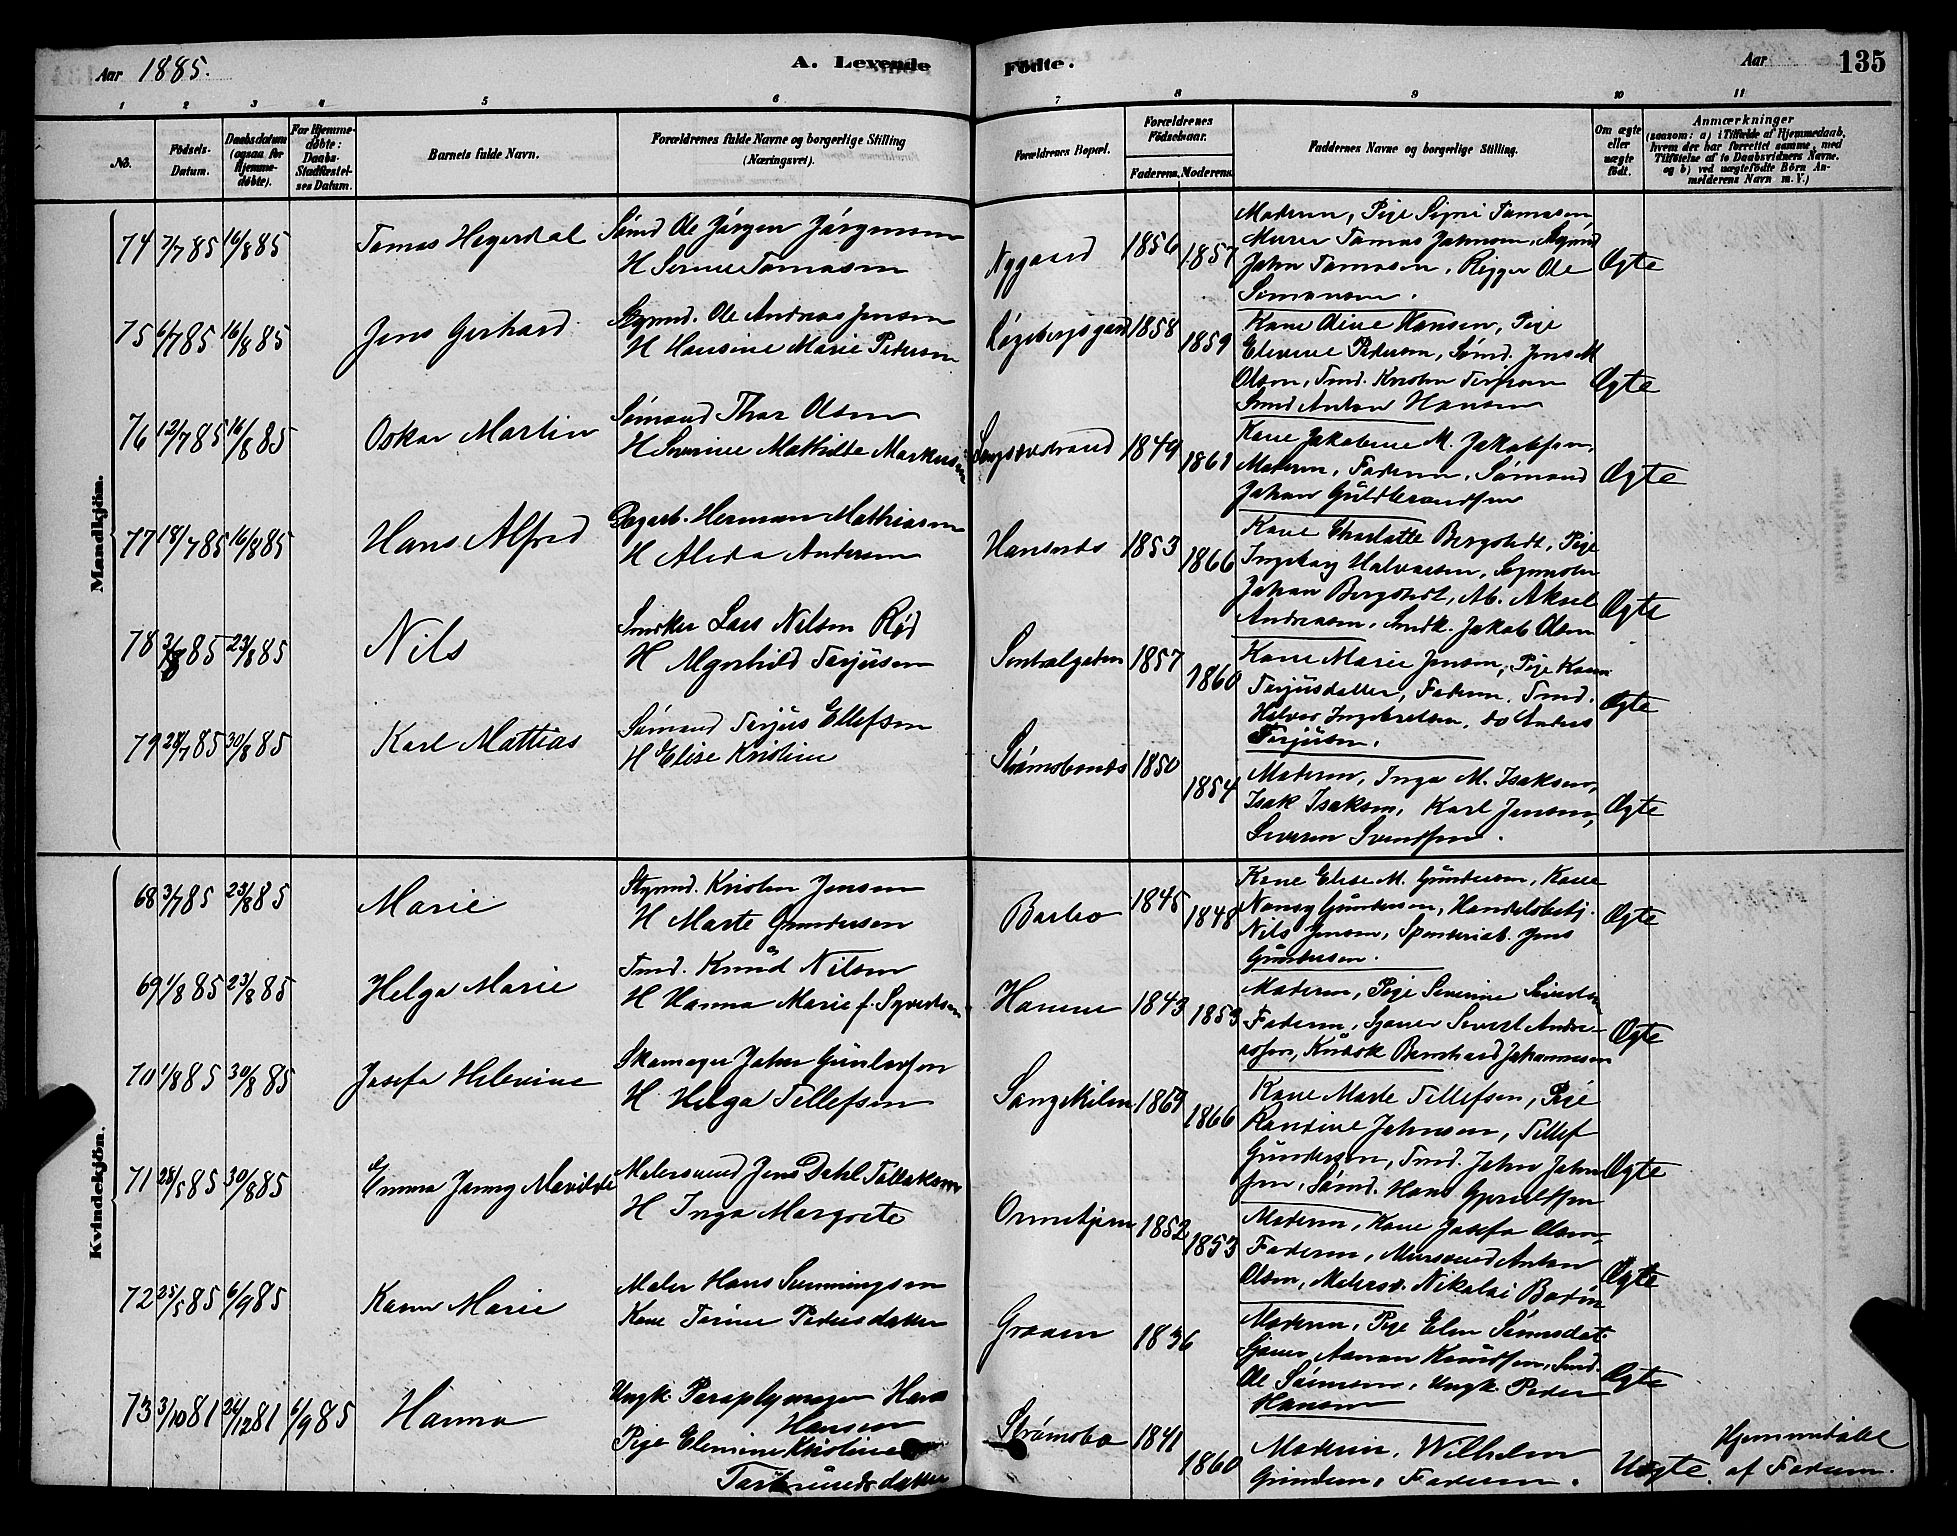 Aar 1885.
A. Levende
Fødte.
Aar
135
1 2 3 4 5 6 7 8 9 10 11
No.
Fødsels-Datum.
Daabsdatum (ogsaa for Hjemme-døbte).
For Hjemme-døbte: Daabs-Stadfæstel-ses Datum.
Barnets fulde Navn.
Forældrenes fulde Navne og borgerlige Stilling (Næringsvei).
Forældrenes Bopæl.
Forældrenes Fødselsaar.
Faderens. Moderens.
Faddernes Navne og borgerlige Stilling.
Om ægte eller uægte født.
Anmærkninger
(saasom: a) i Tilfælde af Hjemmedaab, hvem der har forrettet samme, med Tilføielse af to Daabsvidners Navne. og b) ved uægtefødte Børn An-melderens Navn m. V.)
Mandkjøn.
74 7/7 85 16/8 85 Tomas Hegerdal
Sømd Ole Jørgen Jørgensen
H Serine Tomasen
Nygaard 1856 1857
Moderen, Pige Signe Tomasen
Murer Tomas Johnsen, Styrmd
John Tomasen, Rigger Ole
Simonsen.
Ægte
75 6/7 85 16/8 85 Jens Gerhard
Stymd. Ole Andreas Jensen
H Hansine Marie Pedersen
1858 1859
Kone Oline Hansen, Pige
Elevine Pedersen, Sømd. Jens M
Olsen, Tmd. Kristen Terjesen
Smd Anton Hansen
Ægte
76 12/7 85 16/8 85 Oskar Martin
Sømand Thor Olsen
H Severine Mathilde Markusen
Langsæstrand 1849 1861
Kone Jakobine M. Jakobsen,
Moderen, Faderen, Sømand
Johan Guldbrandsen
Ægte
77 18/7 85 16/8 85 Hans Alfred
Herman Mathiasen
H Alida Andersen
1853 1866
Kone Charlotte Bergstedt, Pige
Ingeborg Halvorsen,
Johan Bergstedt, Ab. Aksel
Andreasen, Smdk. Jakob Olsen
Ægte
78 3/8 85 23/8 85 Nils
Snedker Lars Nilsen Rød
H Algerhild Terjusen
Sentralgaten 1857 1860
Kone Marie Jensen, Pige Karen
Terjusdatter, Faderen, Tmd.
Halvor Ingebretsen, do Anders
Terjusen.
Ægte
79 28/7 85 30/8 85 Karl Mattias
Sømand Terjus Ellefsen
H Elise Kristine
Strømsbonds 1850 1854
Moderen, Inga M. Isaksen,
Isak Isaksen, Karl Jensen,
Severin Svendsen.
Ægte
Kvindekjøn.
68 3/7 85 23/8 85 Marie
Styrmd. Kristen Jensen
H Marte Gundersen
Barbo 1845 1848
Kone Elise M. Gundersen, Kone
Nansy Gundersen, Handelsbetj.
Nils Jensen, Jens
Gundersen.
Ægte
69 1/8 85 23/8 85 Helga Marie
Tmd. Knud Nilsen
H Hanna Marie f. Syvertsen
Havene 1843 1853
Moderen, Pige Severine Sivertsen
Faderen, Sjauer Sivert Andre-
assen, Bernhard Johannesen
Ægte
70 1/8 85 30/8 85 Josefa Helevine
Skomager John Gundersen
H Helga Tellefsen
Songekilen 1866
Kone Marte Tellefsen, Pige
Randine Johnsen, Tellef
Gundersen, Tmd. John John
sen, Sømd. Hans
Ægte
71 28/5 85 30/8 85 Emma Jenny Mavilde
Malersvend Jens Dahl Tallaksen
H Inga Margrete
1852 1853
Moderen, Kone Josefa Olsen,
Faderen, Mursvend Anton
Olsen, Malersv. Nikolai
Ægte
72 25/5 85 6/9 85 Karen Marie
Maler Hans Svenningsen
Kone Torine Pedersdatter
Graaen 1836
Moderen, Pige Elen
Sjauer Aanon Knudsen, Smd.
Ole Sørensen, Ungk Peder
Hansen
Ægte
73 3/10 81 26/12 81 6/9 85 Hanna
Ungk. Paraplymager Hans
Hansen
Pige Elemine Kristine
Strømsbo 1841 1860
Moderen, Wilhelm
Gundersen, Faderen.
Uægte.
Hjemmedøbt
af Faderen.